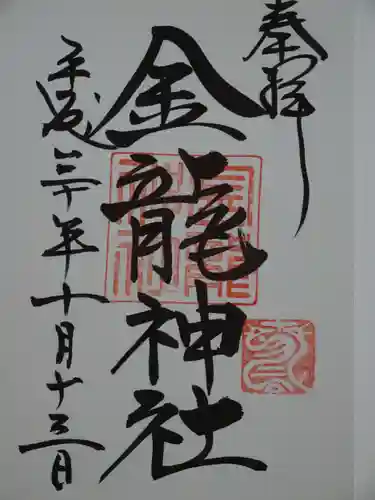 奉拝
金龍神社
平成三十年十月十三日